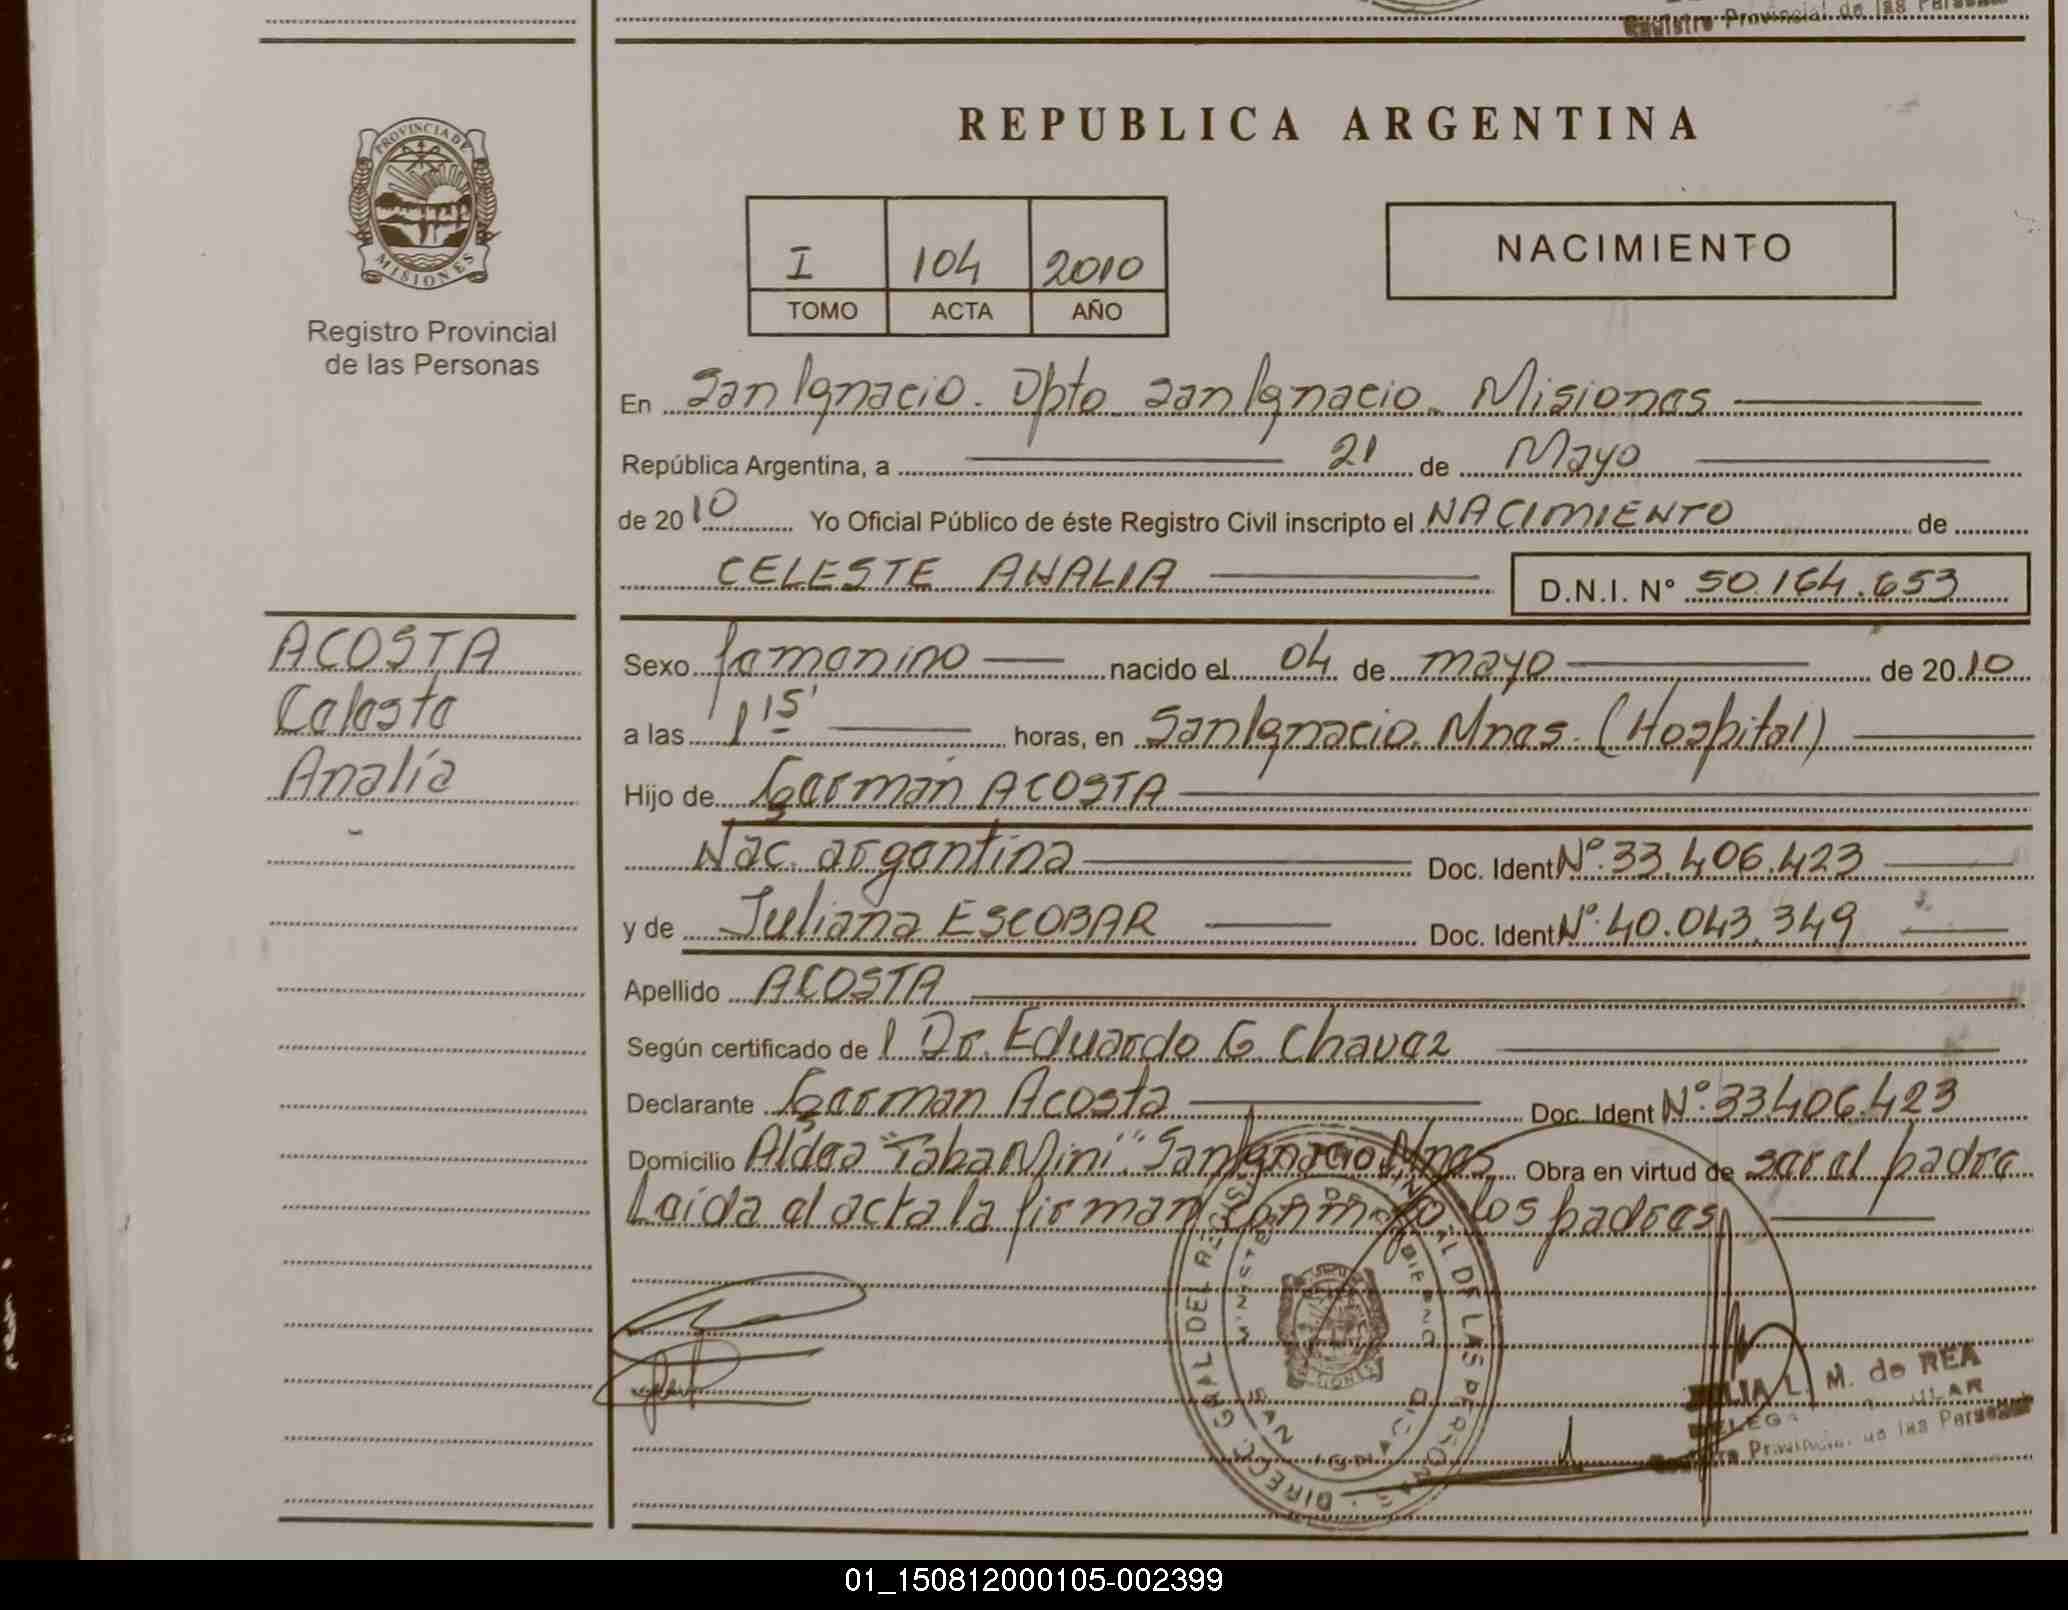 Registro Provincial de las Personas
REPUBLICA ARGENTINA
PROVINCIA DE
MISIONES
Registro Provincial
de las Personas
I 104 2010
TOMO ACTA AÑO
NACIMIENTO
En San Ignacio. Dpto San Ignacio. Misiones
República Argentina, a 21 de Mayo
de 2010 Yo Oficial Público de éste Registro Civil inscripto el NACIMIENTO de
CELESTE ANALIA D.N.I. N° 50.164.653
ACOSTA
Celeste
Analía
Sexo femenino nacido el 04 de mayo de 2010
a las 1 15' horas, en San Ignacio. Mnes. (Hospital)
Hijo de Germán ACOSTA
Nac. argentina Doc. Ident N°.33.406.423
y de Juliana ESCOBAR Doc. Ident N°.40.043.349
Apellido ACOSTA
Según certificado de l Dr. Eduardo G. Chavez
Declarante German Acosta Doc. Ident N°.33406.423
Domicilio Aldea "Taba Mini". San Ignacio Mnes. Obra en virtud de ser el padre
Leída el acta la firman conmigo los padres
DIRECC. GRAL DEL REGIST. PROVINCIAL DE LAS PERSONAS
SAN IGNACIO
MISIONES
L. M. de REA
Registro Provincial de las Personas
01_150812000105-002399